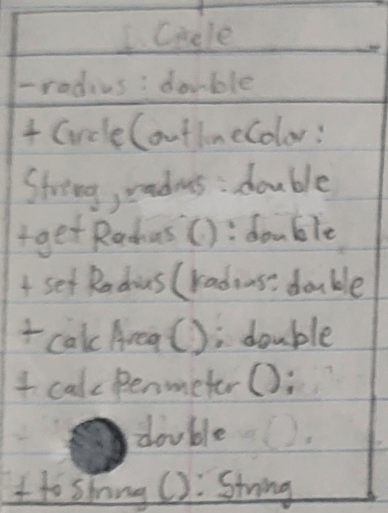 1. Circle
-radius: double
+ Circle(outlineColor:
String, radius: double
+getRadius(): double
+ setRadius(radius: double
+ calcArea(): double
+ calcPerimeter():
double ().
+ toString(): String